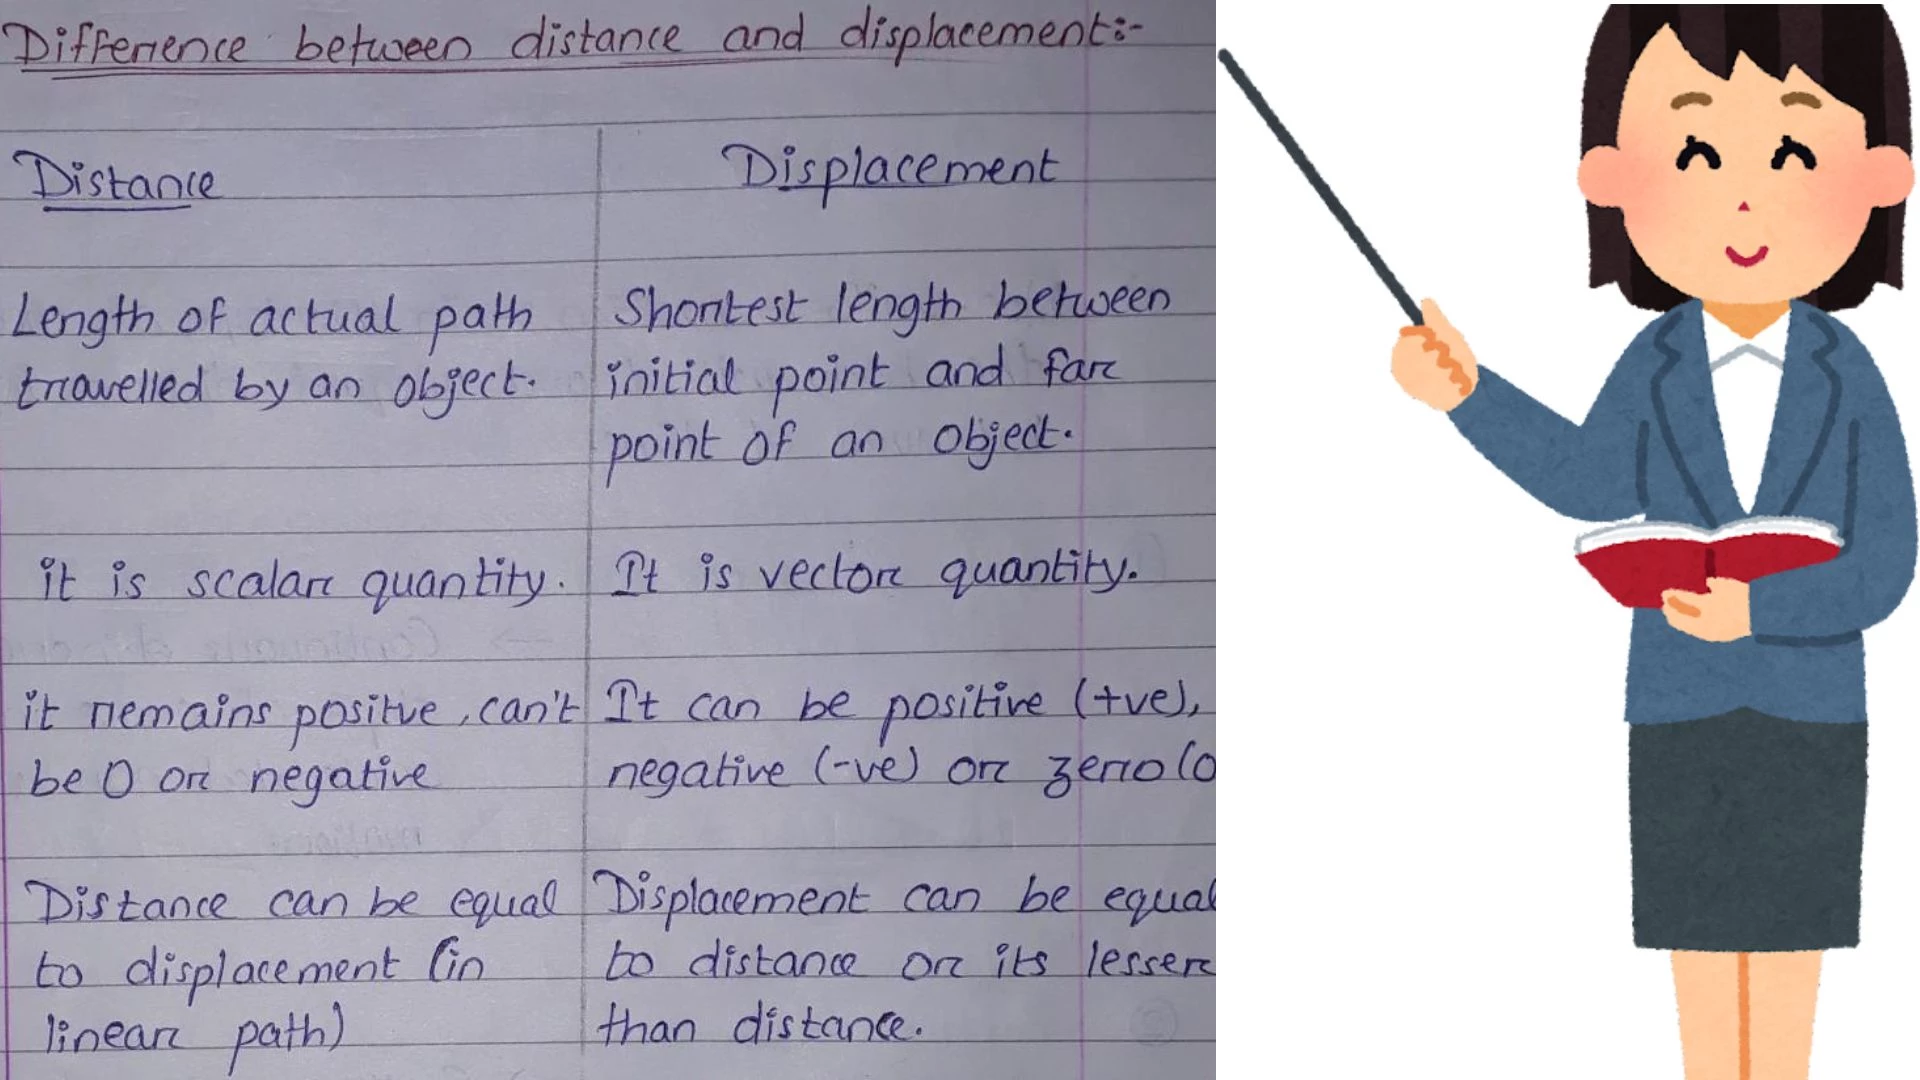 Difference between distance and displacement:-
Distance
Displacement
Length of actual path
travelled by an object.
Shortest length between
initial point and far
point of an object.
it is scalar quantity.
It is vector quantity.
it remains positve, can't
be 0 or negative
It can be positive (+ve),
negative (-ve) or zero (0
Distance can be equal
to displacement (in
linear path)
Displacement can be equal
to distance or its lesser
than distance.